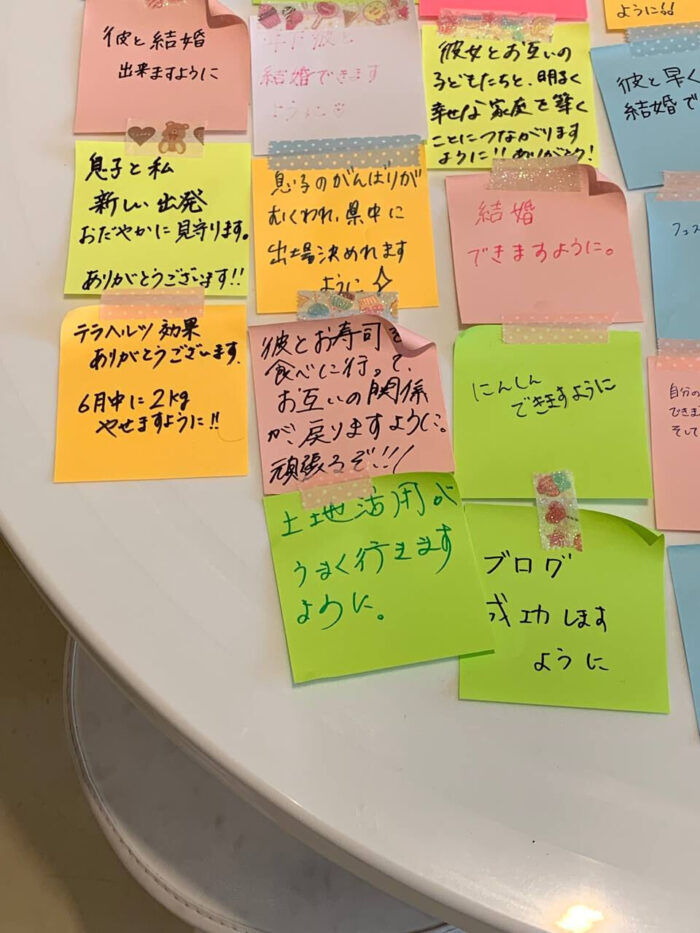 彼と結婚
出来ますように
年下彼と
結婚できます
ように
彼女とお互いの
子どもたちと、明るく
幸せな家庭を築く
ことにつながります
ように!!ありがとう!
ように
彼と早く
結婚で
息子と私
新しい出発
おだやかに見守ります。
ありがとうございます!!
息子のがんばりが
むくわれ、県中に
出場決めれます
ように
結婚
できますように。
フェス
テラヘルツ効果
ありがとうございます。
6月中に2kg
やせますように!!
彼とお寿司を
食べに行って、
お互いの関係
が、戻りますように。
頑張るぞ!!!
にんしん
できますように
自分の
できま
そして
土地活用が
うまく行きます
ように。
ブログ
成功します
ように